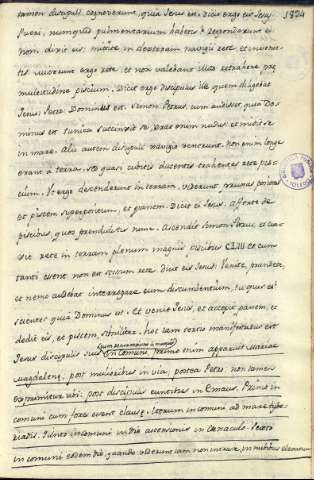 tamen discipuli cognoverunt, quia Jesus est. Dicit ergo eis Jesus 1824
Pueri, numquid pulmentarium habetis? Responderunt ei
non. dixit eis: mittite in dexteram navigii rete et invenie-
tis. Miserunt ergo rete: et non valebant illud retrahere prę
multitudine piscium. Dicit ergo discipulus ille quem diligebat
Jesus: Petro Dominus est. Simon Petrus cum audisset quia Do-
minus est tunica succinxit se, erat enim nudus et misit se
in mare. Alii autem discipuli navigio venerunt. non enim longe
erant a terra, sed quasi cubitis ducentis trahentes rete pis-
cium. Ut ergo descenderunt in terram, viderunt, prunas positas
et piscem superpositum, et panem. Dicit eis Jesus: afferte de
piscibus, quos prendidistis nunc. Ascendit Simon Petrus, et tra-
xit rete in terram plenum magnis piscibus CLIII et cum
tanti essent non est scissum rete. dicit eis Jesus: Venite, prandete,
et nemo audebat interrogare eum discumbentium, tu quis es?
scientes quia Dominus est. Et venit Jesus, et accepit panem, et
dedit eis, et piscem, similiter. hoc iam tertio manifestatus est
Jesus discipulis suis in comuni, primo enim apparuit Mariae
Magdalenę, post mulieribus in via, postea Petro, non tamen
post discipulis euntibus in Emaus. Primo in
comuni cum fores erant clausę. Iterum in comuni ad mare tybe-
riadis. in comuni in die ascensionis in Cenaculo.
in comuni eodem die, quando viderunt eum